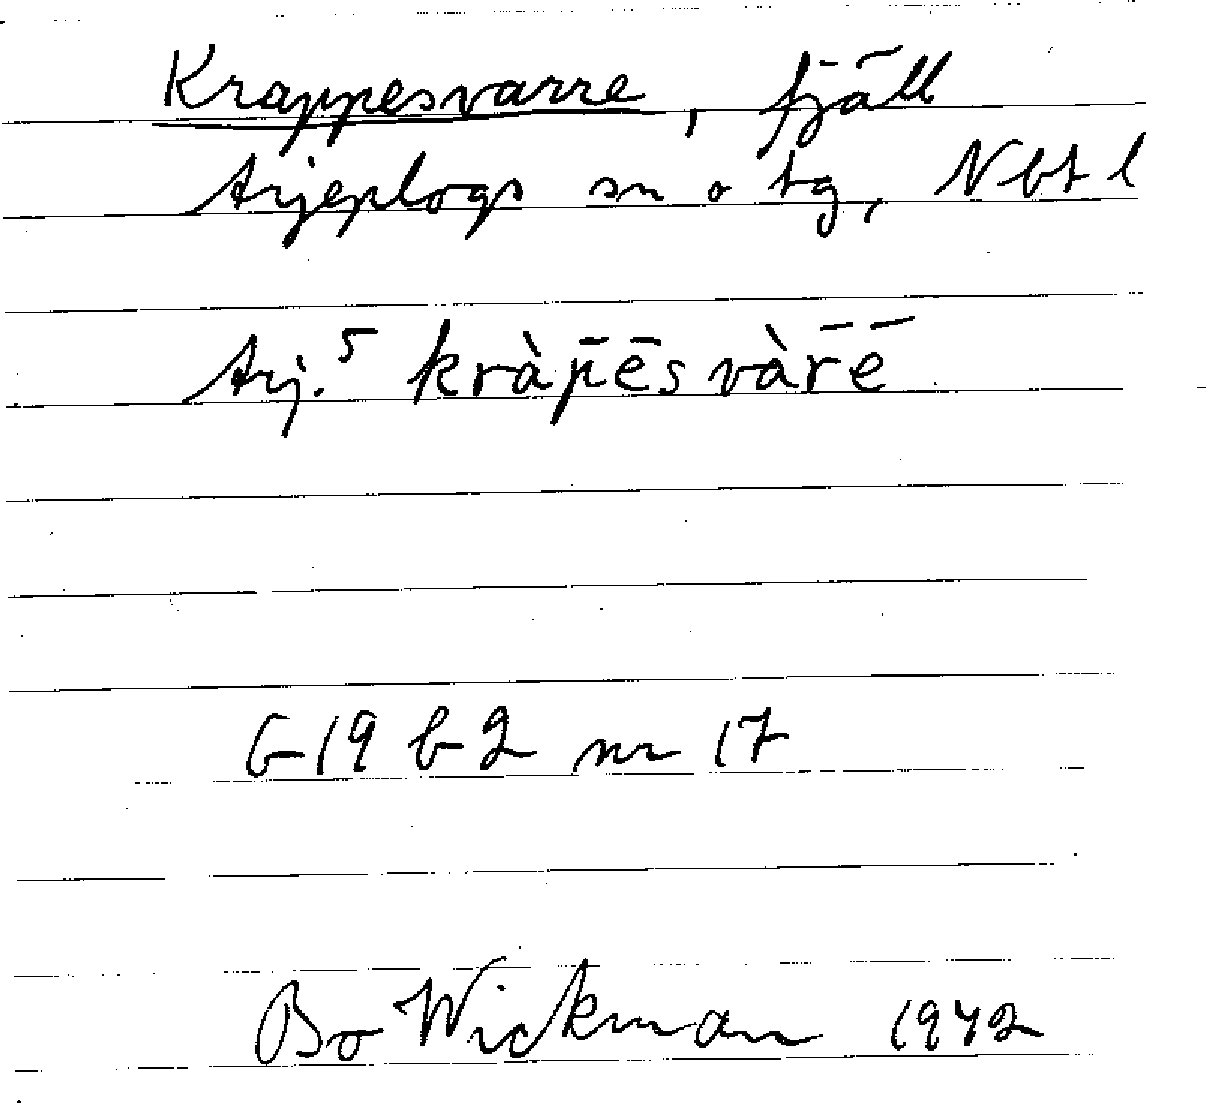 Krappesvarre, fjäll
Arjeplogs sn o tg, Nbt l
Arj.⁵ kràp̄ēsvàr̄ē
G 19 b 2 nr 17
Bo Wickman 1942